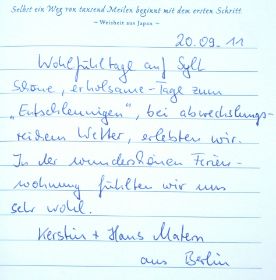 Selbst ein Weg von tausend Meilen beginnt mit dem ersten Schritt.
~ Weisheit aus Japan ~
20.09.11
Wohlfühltage auf Sylt
Schöne, erholsame Tage zum
„Entschleunigen", bei abwechslungs-
reichem Wetter, erlebten wir.
In der wunderschönen Ferien-
wohnung fühlten wir uns
sehr wohl.
Kerstin + Hans Matern
aus Berlin